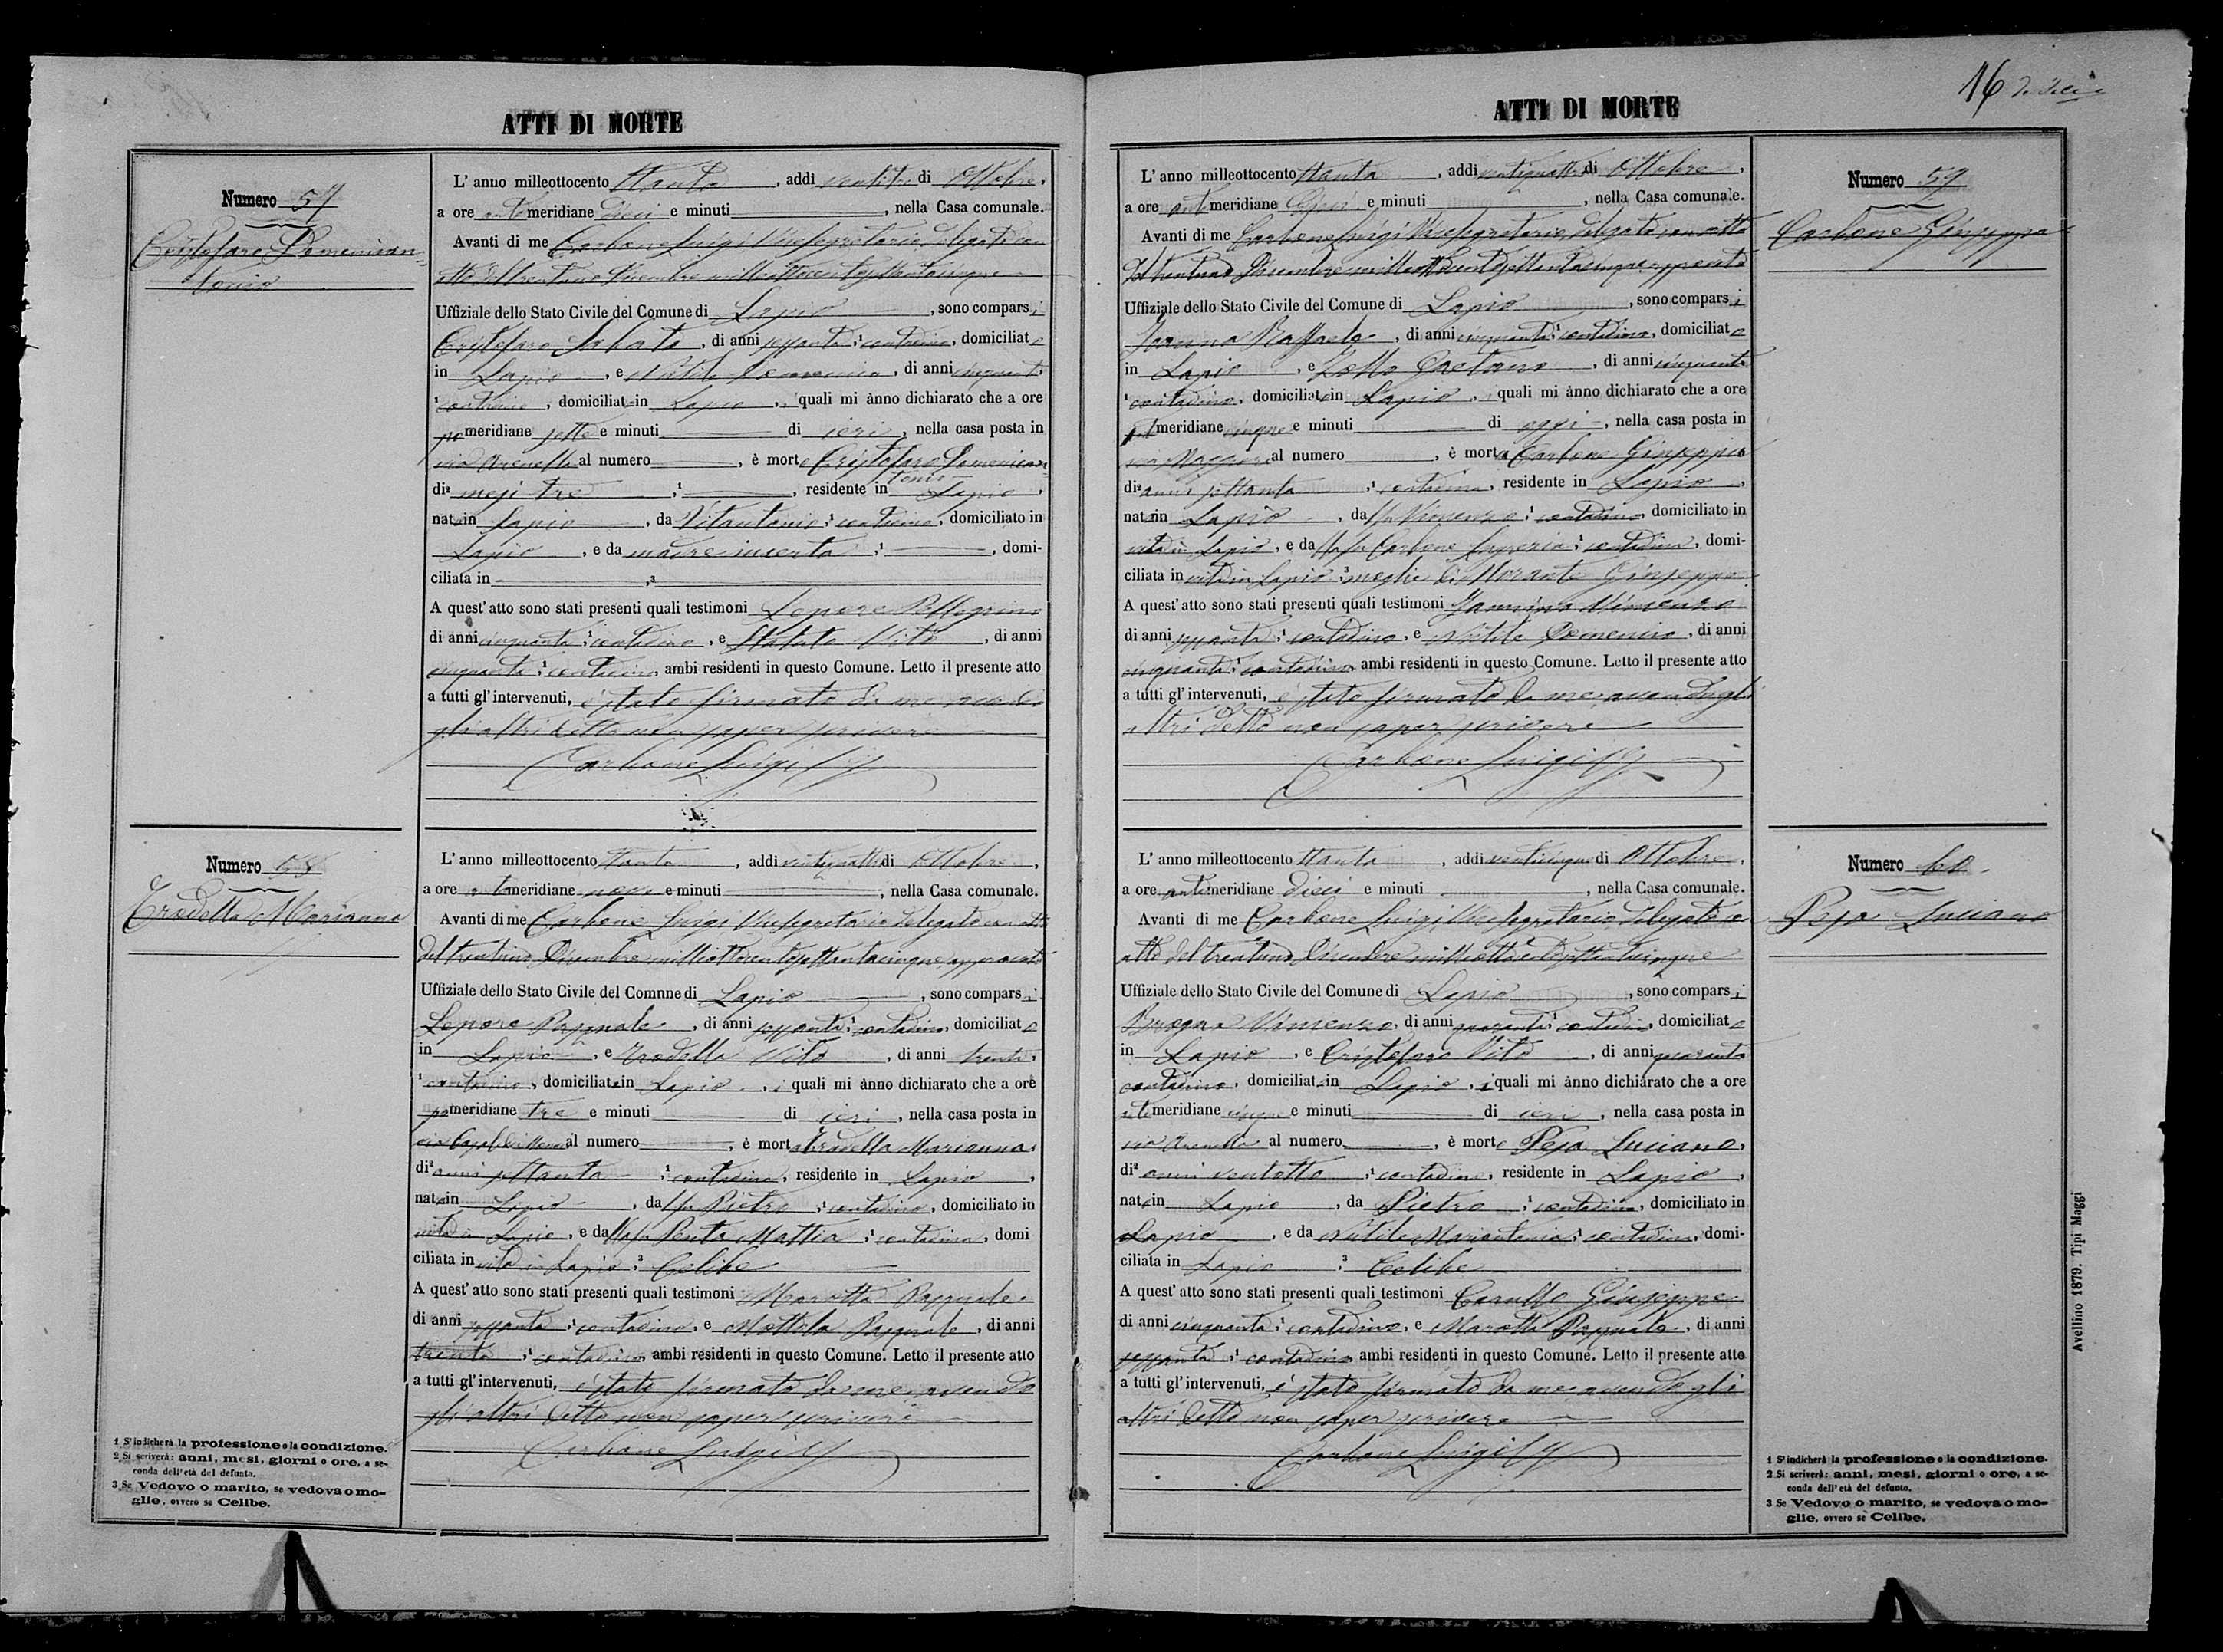 ATTI DI MORTE
Numero 57
Cristofaro Domenican-
tonio
L' anno milleottocento ottanta, addì ventitre di Ottobre,
a ore antimeridiane dieci e minuti, nella Casa comunale.
Avanti di me Carbone Luigi Vicesegretario, delegato con
atto del trentuno Dicembre milleottocentosettantacinque
Uffiziale dello Stato Civile del Comune di Lapio, sono comparsi
Cristofaro Sabato, di anni sessanta, contadino, domiciliato
in Lapio, e Nitile Domenico, di anni cinquanta
contadino, domiciliato in Lapio, i quali mi ànno dichiarato che a ore
pomeridiane sette e minuti di ieri, nella casa posta in
via Arenella al numero, è morto Cristofaro Domenican
tonio
di² mesi tre, residente in Lapio,
nato in Lapio, da Vitantonio, contadino, domiciliato in
Lapio, e da madre incerta, domi-
ciliata in ,3
A quest' atto sono stati presenti quali testimoni Lepore Pellegrino
di anni cinquanta, contadino, e Statuto Vito, di anni
cinquanta, contadino, ambi residenti in questo Comune. Letto il presente atto
a tutti gl' intervenuti, è stato firmato da me, avendo
gli altri detto non saper scrivere
Carbone Luigi
Numero 58
Trodella Marianna
L' anno milleottocento ottanta, addì ventiquattro di Ottobre,
a ore antimeridiane nove e minuti, nella Casa comunale.
Avanti di me Carbone Luigi Vicesegretario delegato con atto
del trentuno Dicembre milleottocentosettantacinque, approvato
Uffiziale dello Stato Civile del Comnne di Lapio, sono comparsi
Lepore Pasquale, di anni sessanta, contadino, domiciliato
in Lapio, e Trodella Vito, di anni trenta,
contadino, domiciliato in Lapio, i quali mi ànno dichiarato che a ore
pomeridiane tre e minuti di ieri, nella casa posta in
via al numero, è morta Trodella Marianna,
di² anni settanta, contadina, residente in Lapio,
nata in Lapio, da fu Pietro, contadino, domiciliato in
vita in Lapio, e da fu Penta Mattia, contadina, domi
ciliata in vita in Lapio, 3 Celibe
A quest' atto sono stati presenti quali testimoni Marotta Pasquale
di anni sessanta, contadino, e Mottola Pasquale, di anni
trenta, contadino ambi residenti in questo Comune. Letto il presente atto
a tutti gl' intervenuti, è stato firmato da me, avendo
gli altri detto non saper scrivere
Carbone Luigi
1 S' indicherà la professione o la condizione.
2 Si scriverà: anni, mesi, giorni o ore, a se-
conda dell' età del defunto.
3 Se Vedovo o marito, se vedova o mo-
glie, ovvero se Celibe.
16
ATTI DI MORTE
Numero 59
Carbone Giuseppa
L' anno milleottocento ottanta, addì ventiquattro di Ottobre,
a ore antimeridiane dieci e minuti, nella Casa comunale.
Avanti di me Carbone Luigi Vicesegretario, delegato con atto
del trentuno Dicembre milleottocentosettantacinque, approvato
Uffiziale dello Stato Civile del Comune di Lapio, sono comparsi
Raffaele, di anni cinquanta, contadino, domiciliato
in Lapio, e Zollo Gaetano, di anni cinquanta
contadino, domiciliato in Lapio, i quali mi ànno dichiarato che a ore
antimeridiane cinque e minuti di oggi, nella casa posta in
via Maggiore al numero, è morta Carbone Giuseppa
di² anni settanta, contadina, residente in Lapio,
nata in Lapio, da fu Vincenzo, contadino domiciliato in
vita in Lapio, e da fu Carbone, contadina, domi-
ciliata in vita in Lapio, 3 moglie di Morante Giuseppe
A quest' atto sono stati presenti quali testimoni Jannino Vincenzo
di anni sessanta, contadino, e Nitile Domenico, di anni
cinquanta, contadino ambi residenti in questo Comune. Letto il presente atto
a tutti gl' intervenuti, è stato firmato da me, avendo gli
altri detto non saper scrivere
Carbone Luigi
Numero 60
Pesa Luciano
L' anno milleottocento ottanta, addì venticinque di Ottobre,
a ore antimeridiane dieci e minuti, nella Casa comunale.
Avanti di me Carbone Luigi Vicesegretario, delegato con
atto del trentuno Dicembre milleottocentosettantacinque
Uffiziale dello Stato Civile del Comune di Lapio, sono comparsi
Vincenzo, di anni quaranta, contadino, domiciliato
in Lapio, e Cristofaro Vito, di anni quaranta
contadino, domiciliato in Lapio, i quali mi ànno dichiarato che a ore
antimeridiane cinque e minuti di ieri, nella casa posta in
via Arenella al numero, è morto Pesa Luciano,
di² anni ventotto, contadino, residente in Lapio,
nato in Lapio, da Pietro, contadino, domiciliato in
Lapio, e da Nitile Mariantonia, contadina, domi-
ciliata in Lapio, 3 Celibe
A quest' atto sono stati presenti quali testimoni Carullo Giuseppe
di anni cinquanta, contadino, e Marotta Pasquale, di anni
sessanta, contadino ambi residenti in questo Comune. Letto il presente atto
a tutti gl' intervenuti, è stato firmato da me, avendo gli
altri detto non saper scrivere
Carbone Luigi
1 S' indicherà la professione o la condizione.
2 Si scriverà: anni, mesi, giorni o ore, a se-
conda dell' età del defunto.
3 Se Vedovo o marito, se vedova o mo-
glie, ovvero se Celibe.
Avellino 1879. Tipi Maggi